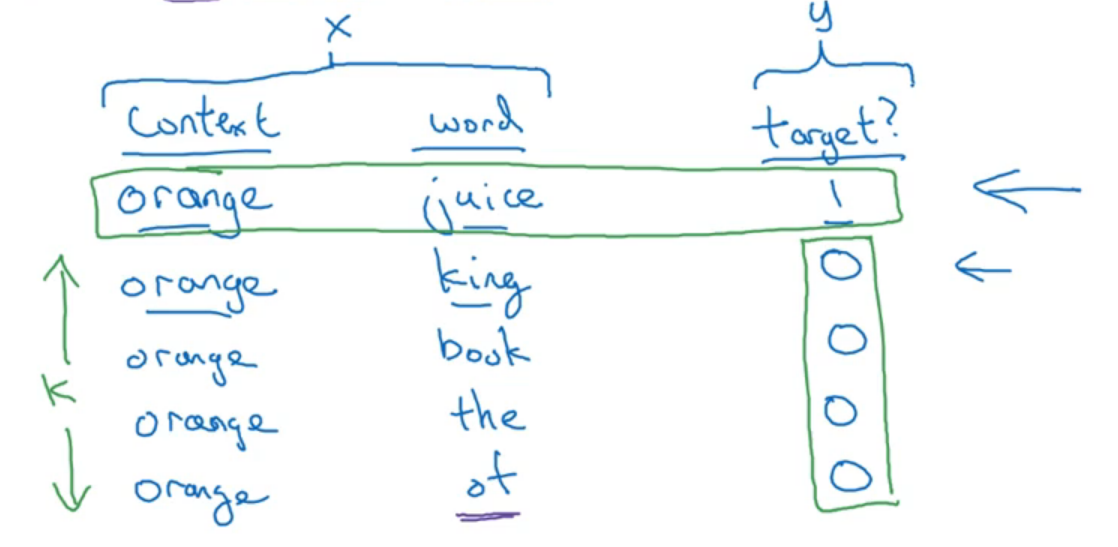 x y
Context word target?
orange juice 1
orange king 0
orange book 0
K
orange the 0
orange of 0